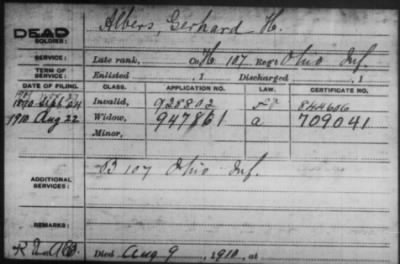 Albers, Gerhard H.
DEAD
SOLDIER:
SERVICE: Late rank, Co. H 107 Reg't Ohio Inf.
TERM OF SERVICE: Enlisted , 1 Discharged , 1
DATE OF FILING. CLASS. APPLICATION NO. LAW. CERTIFICATE NO.
1890 Sept 24 Invalid, 928802 844606
1910 Aug 22 Widow, 947861 a 709041
Minor,
ADDITIONAL SERVICES: 107 Ohio Inf.
REMARKS:
Died Aug 9, 1910, at